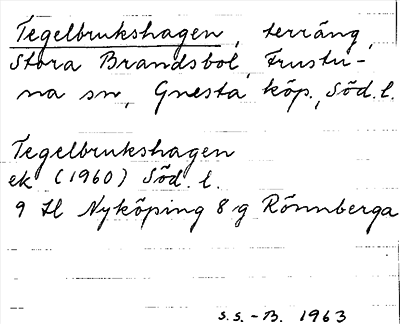 Tegelbrukshagen, terräng,
Stora Brandsbol, Frustu-
na sn, Gnesta köp., Söd. l.
Tegelbrukshagen
ek (1960) Söd. l.
9 H Nyköping 8 g Rönnberga
S.S.-B. 1963